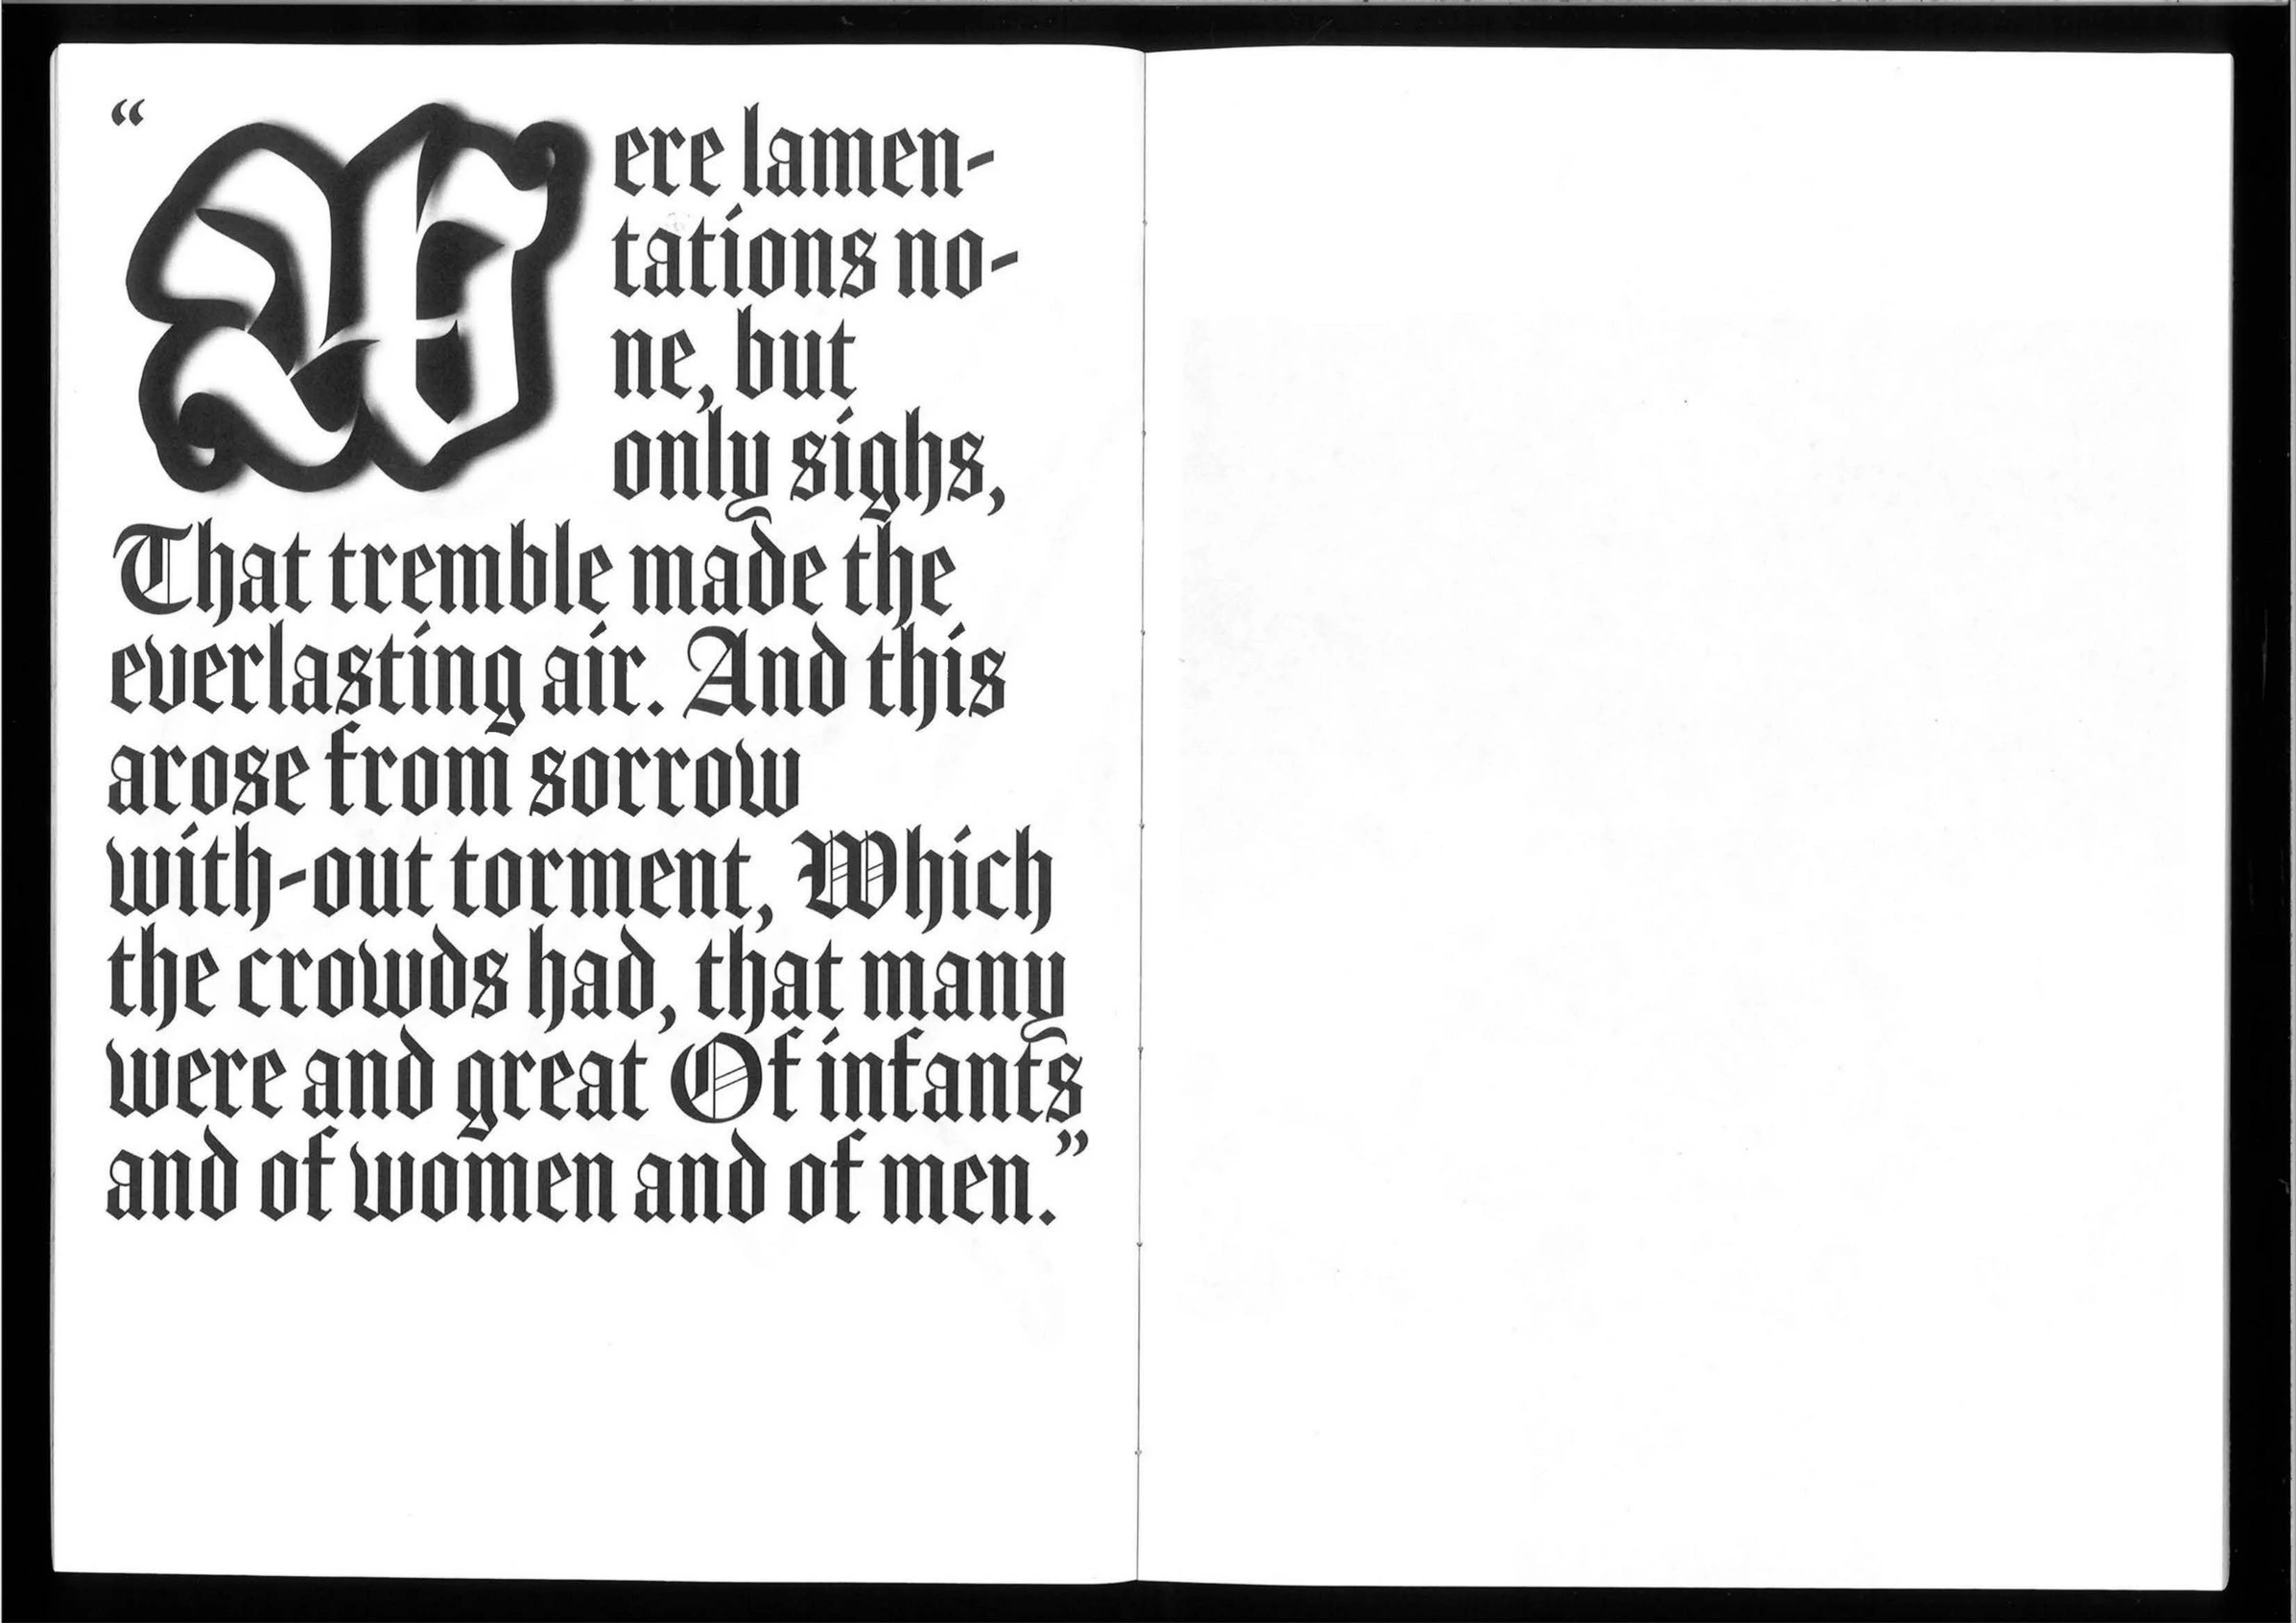 “Were lamen-
tations no-
ne, but
only sighs,
That tremble made the
everlasting air. And this
arose from sorrow
with-out torment, Which
the crowds had, that many
were and great Of infants
and of women and of men.”